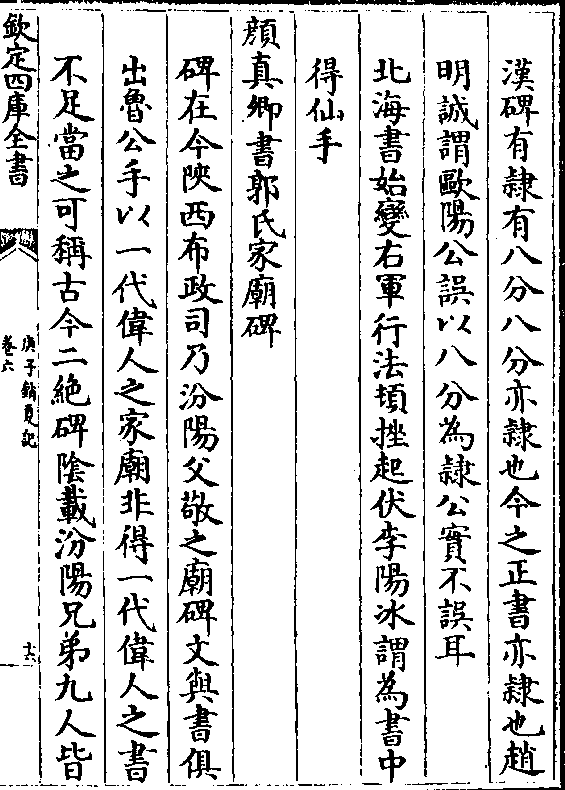 漢碑有隸有八分八分亦隸也今之正書亦隸也趙
明誠謂歐陽公誤以八分為隸公實不誤耳
北海書始變右軍行法頓挫起伏李陽冰謂為書中
得仙手
顔真卿書郭氏家廟碑
碑在今陜西布政司乃汾陽父敬之廟碑文與書俱
出魯公手以一代偉人之家廟非得一代偉人之書
不足當之可稱古今二絶碑陰載汾陽兄弟九人皆
欽定四庫全書
庚子銷夏記
卷六
十六